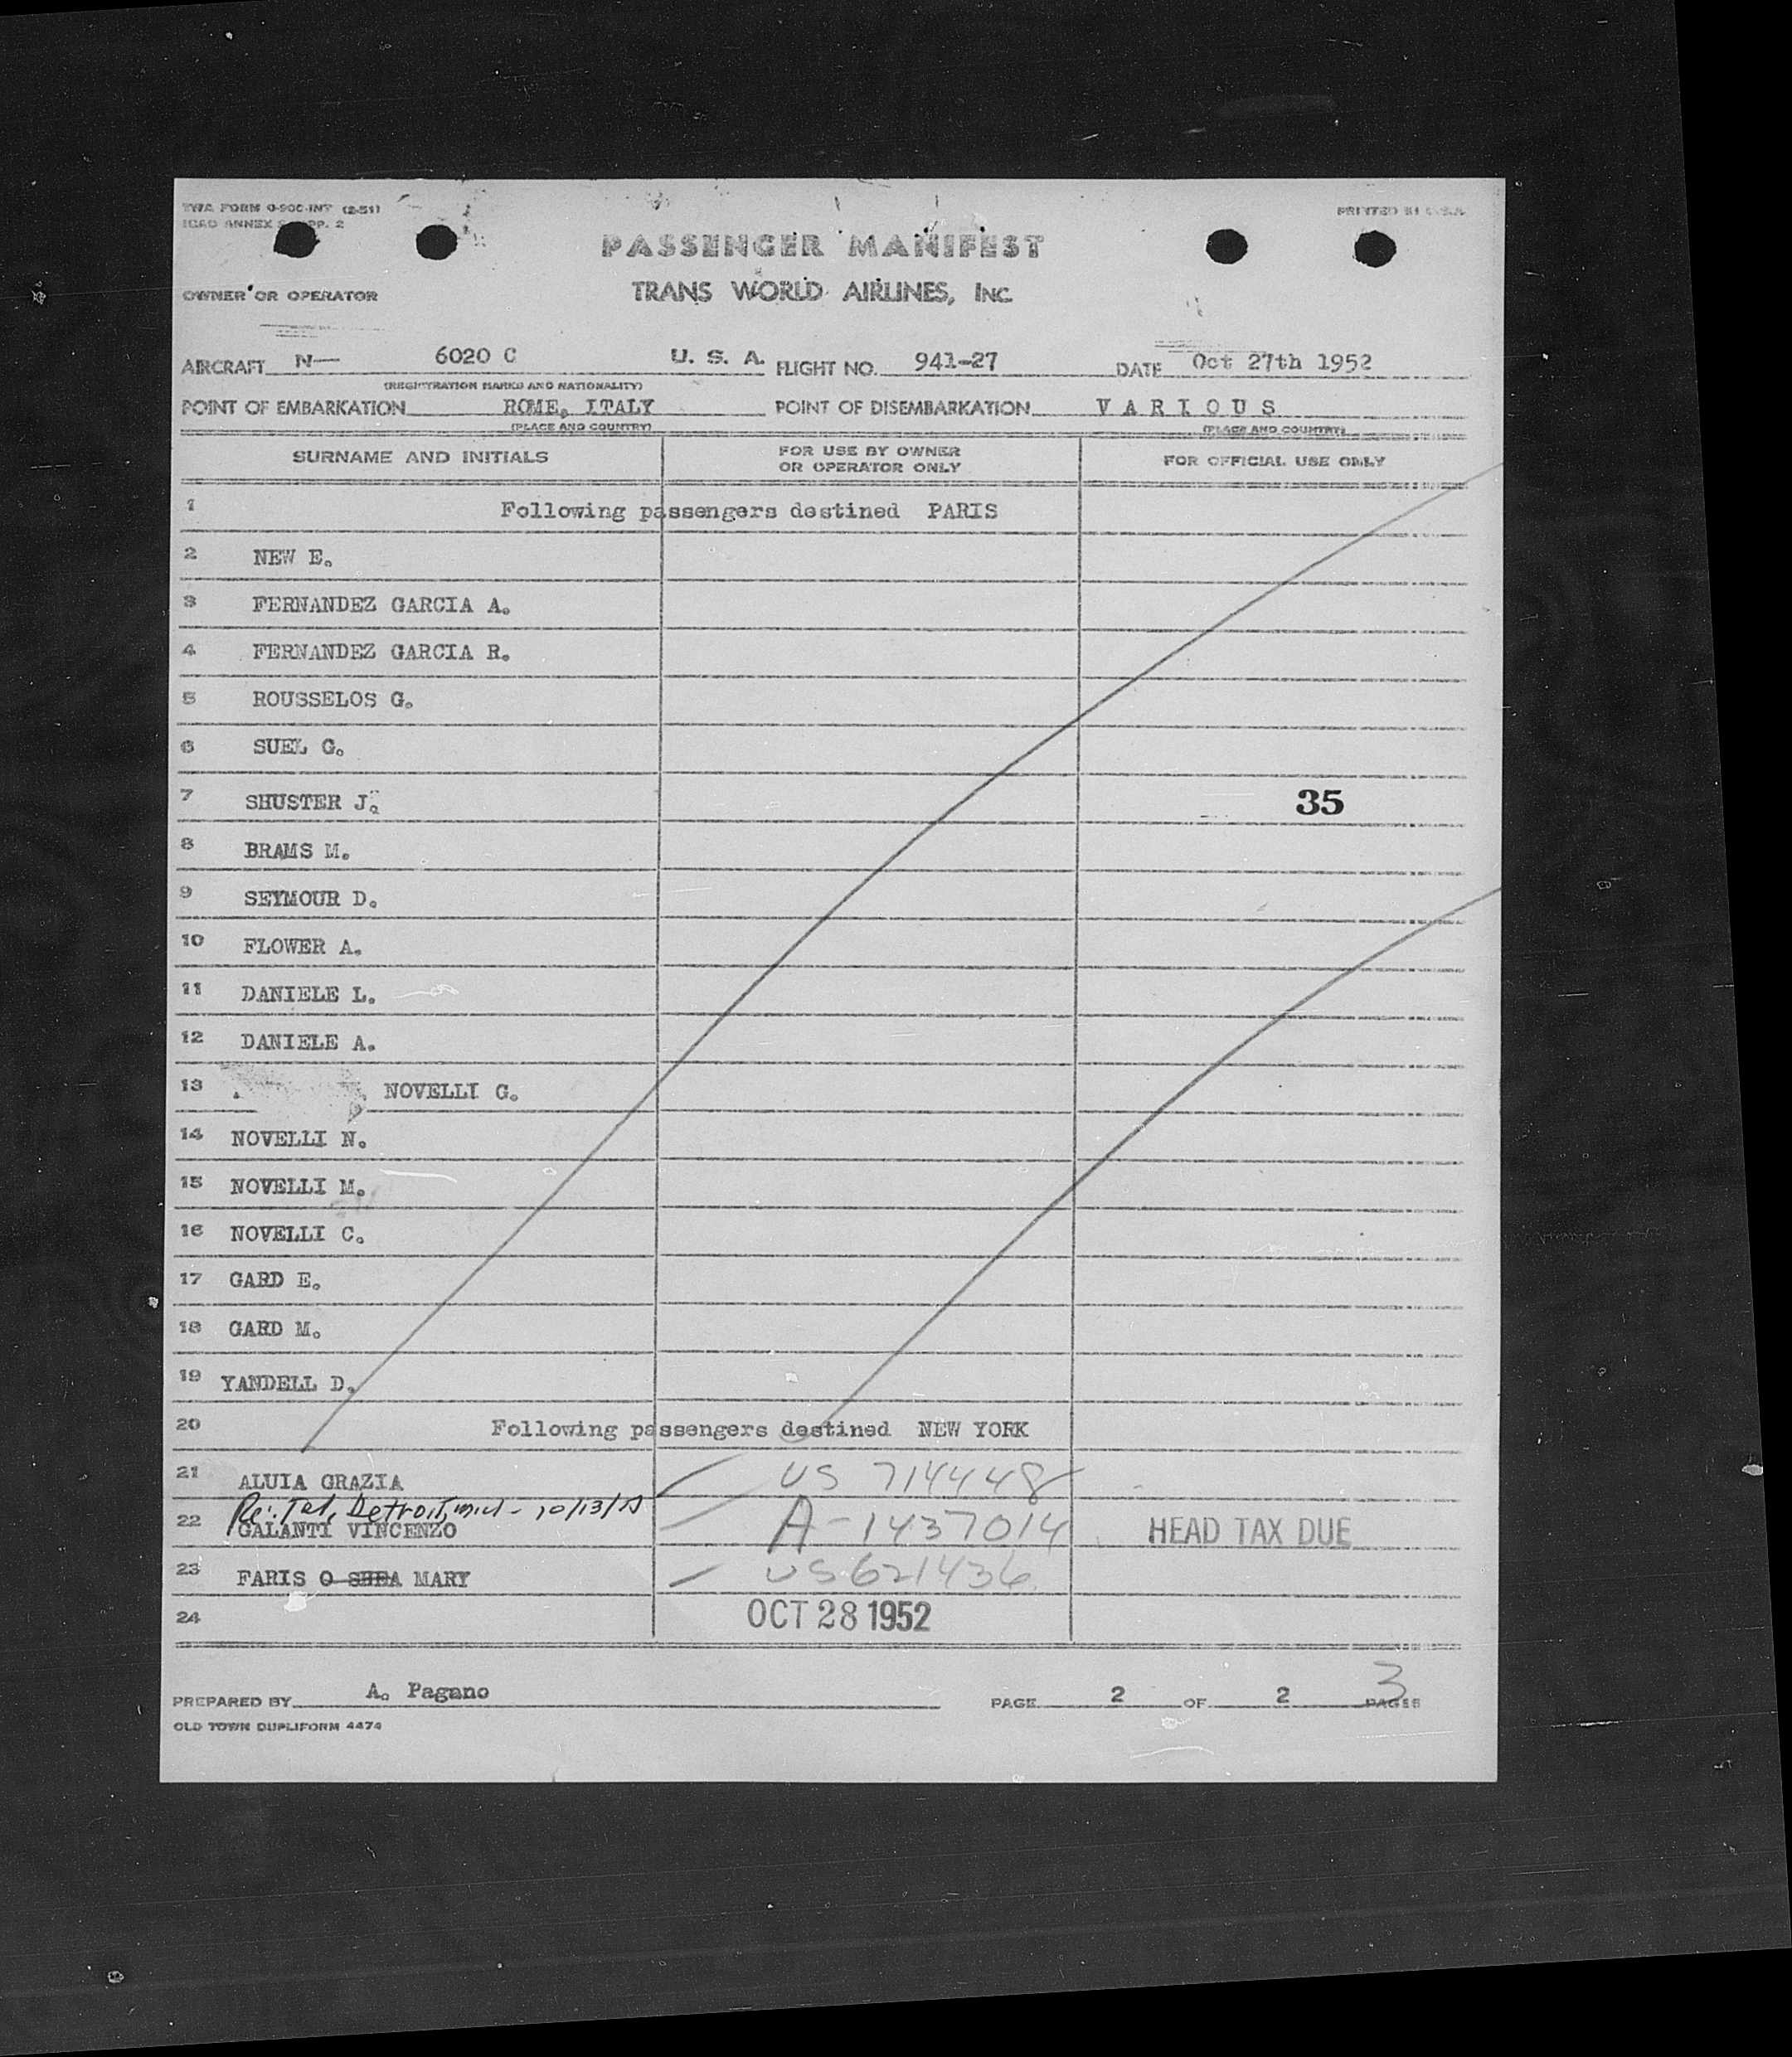 TWA FORM O-900-INT (2-51)
PRINTED IN U.S.A.
ICAO ANNEX 9 APP. 2
PASSENGER MANIFEST
OWNER OR OPERATOR TRANS WORLD AIRLINES, INC.
AIRCRAFT N— 6020 C U. S. A. FLIGHT NO. 941-27 DATE Oct 27th 1952
(REGISTRATION MARKS AND NATIONALITY)
POINT OF EMBARKATION ROME, ITALY POINT OF DISEMBARKATION VARIOUS
(PLACE AND COUNTRY) (PLACE AND COUNTRY)
SURNAME AND INITIALS FOR USE BY OWNER OR OPERATOR ONLY FOR OFFICIAL USE ONLY
1 Following passengers destined PARIS
2 NEW E.
3 FERNANDEZ GARCIA A.
4 FERNANDEZ GARCIA R.
5 ROUSSELOS G.
6 SUEL G.
7 SHUSTER J. 35
8 BRAMS M.
9 SEYMOUR D.
10 FLOWER A.
11 DANIELE L.
12 DANIELE A.
13 NOVELLI G.
14 NOVELLI N.
15 NOVELLI M.
16 NOVELLI C.
17 GARD E.
18 GARD M.
19 YANDELL D.
20 Following passengers destined NEW YORK
21 ALUIA GRAZIA US 714448
Re: Tel, Detroit, Mich -
22 GALANTI VINCENZO A-1437014 HEAD TAX DUE
23 FARIS O SHEA MARY US 621436
24 OCT 28 1952
PREPARED BY A. Pagano PAGE 2 OF 2 3 PAGES
OLD TOWN DUPLIFORM 4474